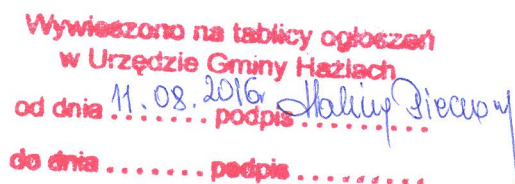 Wywieszono na tablicy ogłoszeń
w Urzędzie Gminy Hażlach
od dnia 11.08.2016r podpis Halina
do dnia ........ podpis ..........